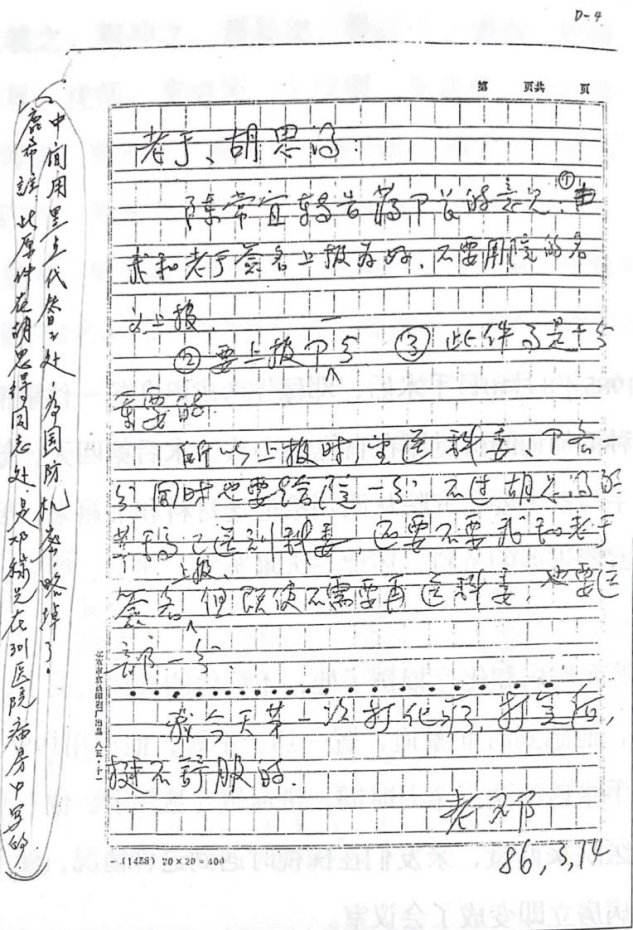 D-4
第 页共 页
老于、胡思得：
陈常宜转告蒋部长的意见：①由
我和老于签名上报为好，不要用院的名
义上报。
②要上报部与 ③此件是十分
重要的
所以上报时，呈送科委、部各一
分，同时也要给院一分，不过胡思得的
草稿已送到科委，还要不要我和老于
上报
签名，但既使不需要再送科委，也要送
部一分。
我今天第一次打化疗，打完后，
挺不舒服的
老邓
86,3,14
(1458) 20×20=400
中间用黑点代替之处，为国防机密，略掉了。
鹿希注 此原件在胡思得同志处，是邓稼先在301医院病房中写的